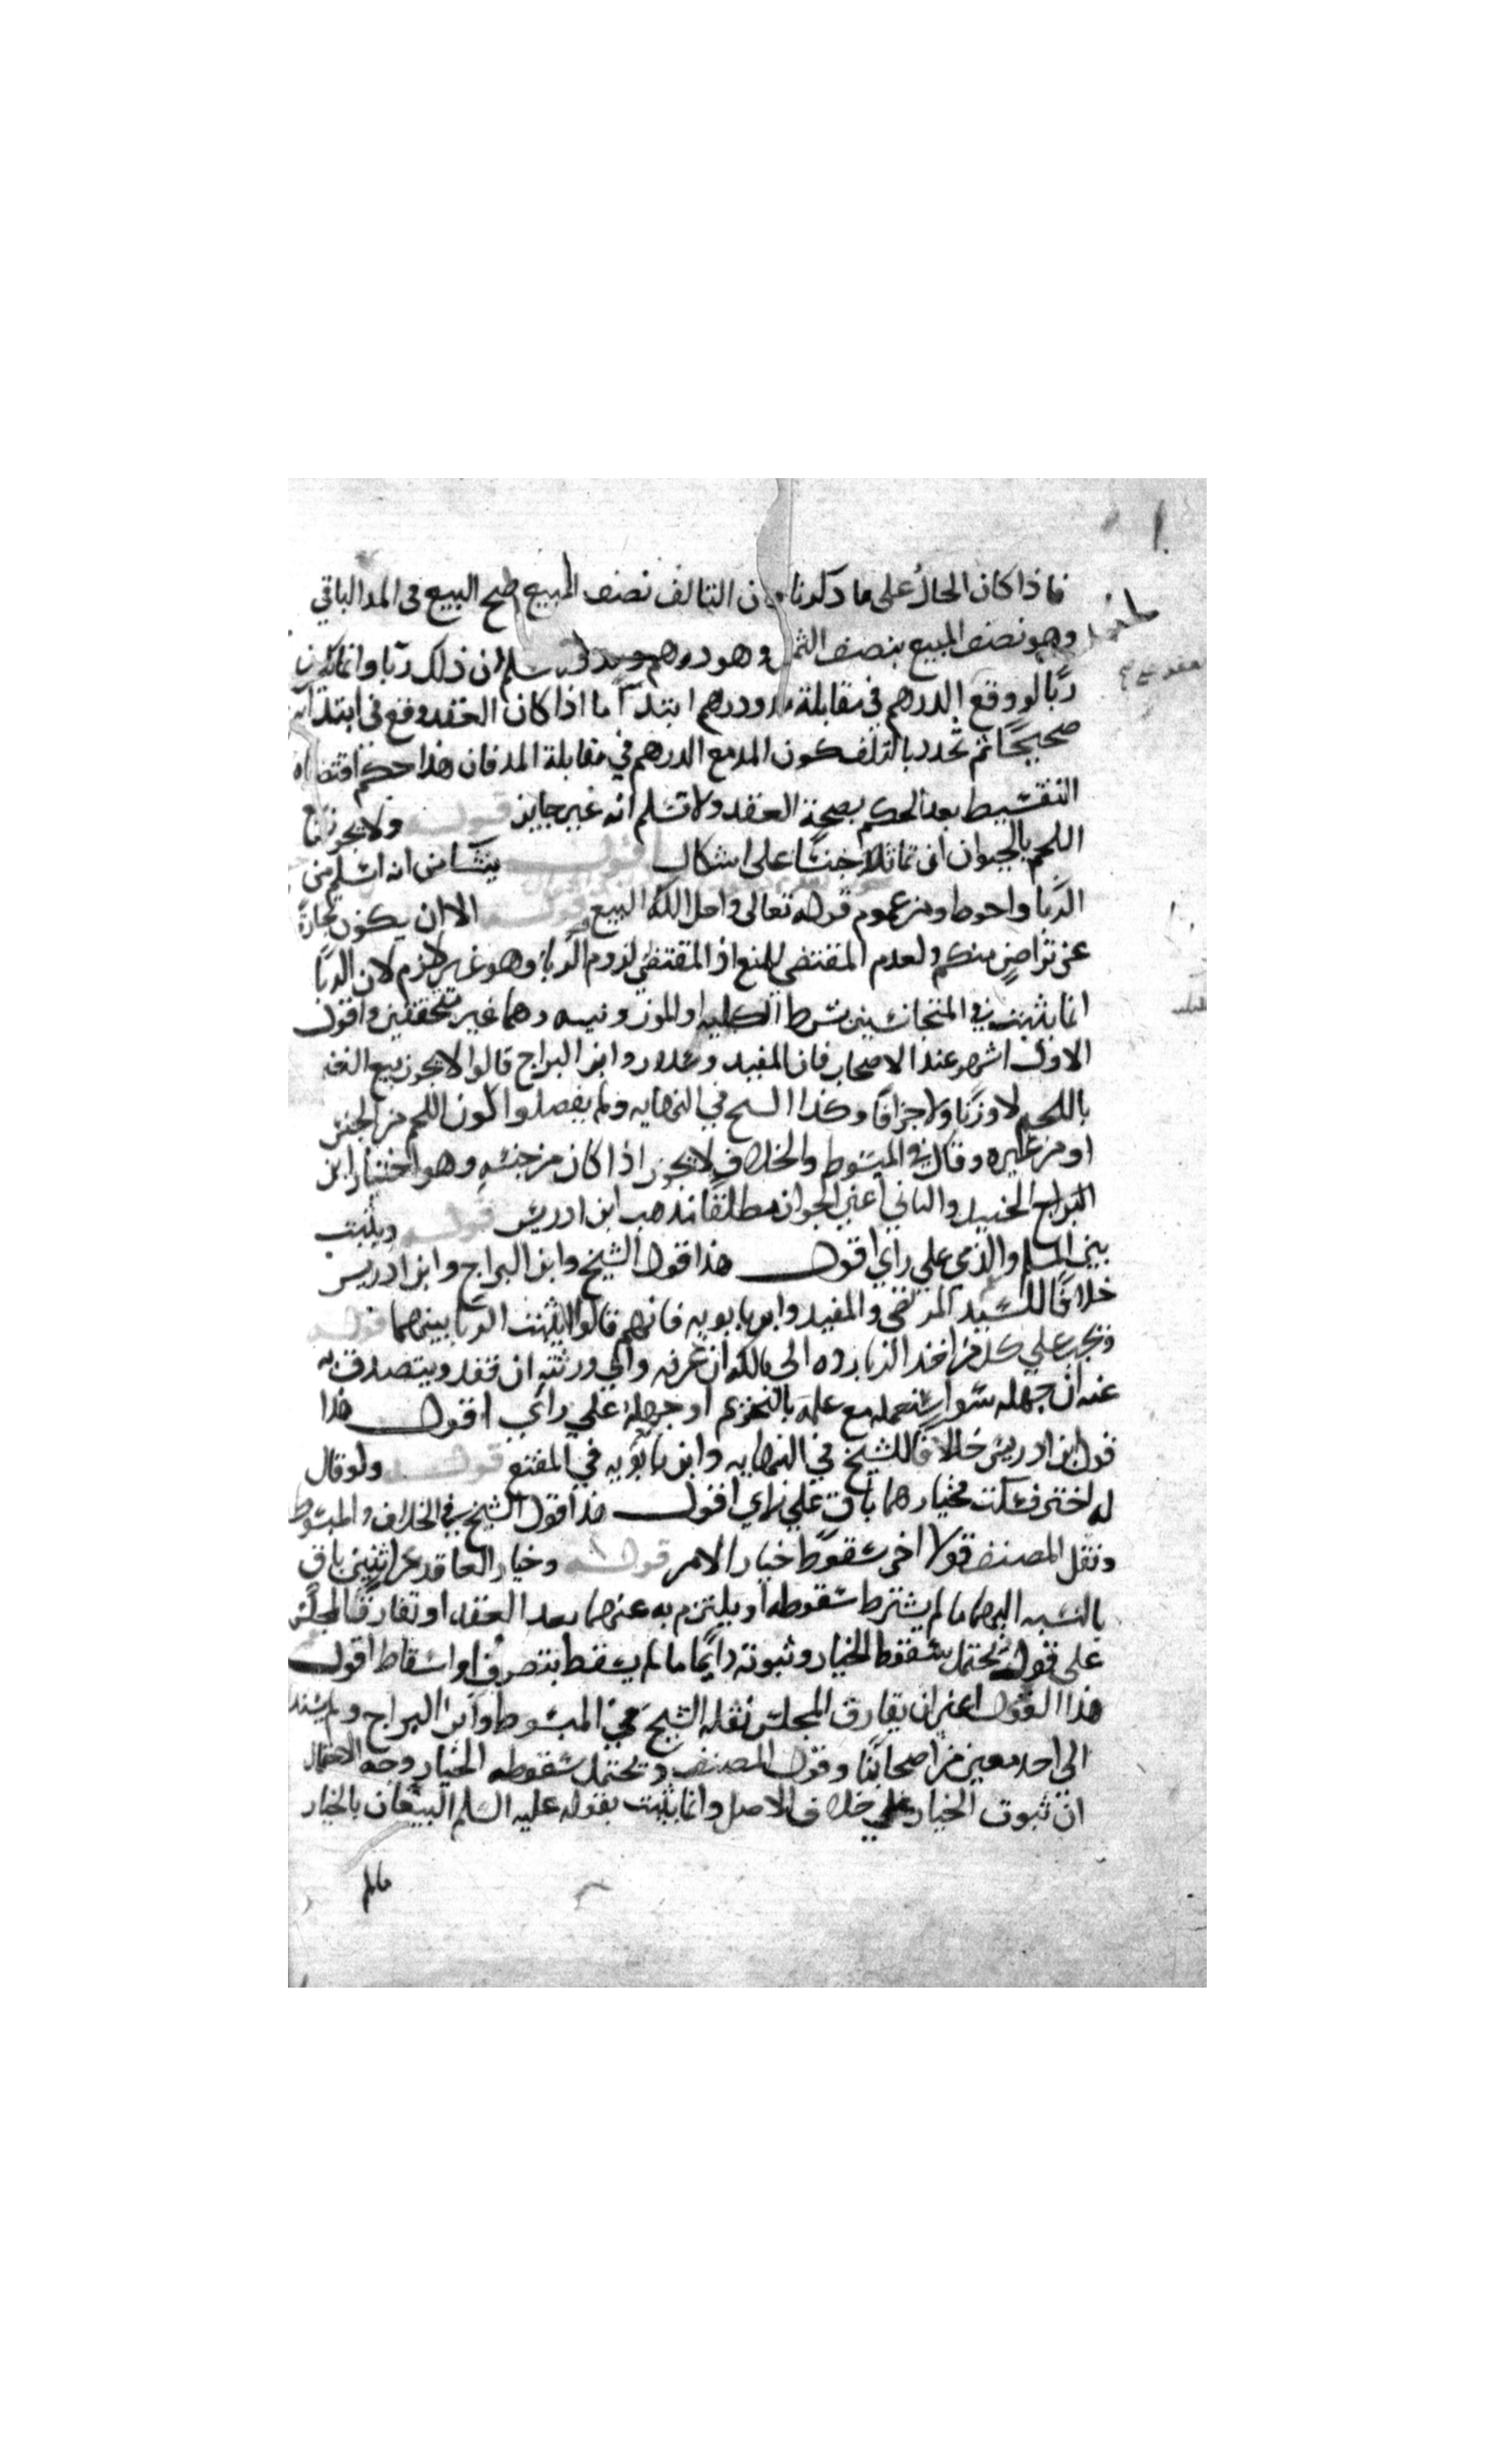 فاذا كان الحال على ما ذكرنا من ان التالف نصف المبيع صح البيع في المد الباقي
وهو نصف المبيع بنصف الثمن وهو درهم ان ذلك ربا وانما يكون
ربا لو وقع الدرهم في مقابلة مد ودرهم ابتدآ اما اذا كان العقد وقع في ابتدائه
صحيحًا ثم تجدد بالتلف كون المد مع الدرهم في مقابلة المد فان هذا حكم اقتضاه
التقسيط بعد الحكم بصحة العقد ولا نسلم انه غير جايز قوله ولا يجوز بيع
اللحم بالحيوان ان تماثلا جنسًا على اشكال اقول ينشا من انه اسلم من
الربا واحوط ومن عموم قوله تعالى واحل الله البيع قوله الا ان يكون تجارة
عن تراضٍ منكم ولعدم المقتضى للمنع اذ المقتضى لزوم الربا وهو غير لازم لان الربا
انما يثبت في المتجانسين بشرط الكليه او الوزن ونيسه وهما غير متحققين واقول
الاول اشهر عند الاصحاب فان المفيد وسلار وابن البراج قالوا لا يجوز بيع الغنم
باللحم لا وزنًا ولا جزافًا وكذا الشيخ في النهايه ولم يفصلوا كون اللحم من الجنس
او من غيره وقال في المبسوط والخلاف لا يجوز اذا كان من جنسه وهو اختيار ابن
البراج الجنيد والثاني اعني الجواز مطلقا مذهب ابن ادريس قوله ويثبت
بين المسلم والذمى على راي اقول هذا قول الشيخ وابن البراج وابن ادريس
خلافًا للسيد المرتضى والمفيد وابن بابويه فانهم قالوا لا يثبت الربا بينهما قوله
ويجب على كل من اخذ الربا رده الى مالكه ان عرفه والى ورثته ان فقد ويتصدق به
عنه ان جهله سوا استعمله مع علمه بالتحريم او جهله على راي اقول هذا
قول ابن ادريس خلافًا للشيخ في النهايه وابن بابويه في المقنع قوله ولو قال
له اختر فسكت فخيارهما باق على راي اقول هذا قول الشيخ في الخلاف والمبسوط
ونقل المصنف قولا اخر سقوط خيار الامر قوله وخيار العاقد عن اثنين باق
بالنسبه اليهما ما لم يشترط سقوطه او يلتزم به عنهما بعد العقد او تفارق المجلس
على قول ويحتمل سقوط الخيار وثبوته دايمًا ما لم يسقط بتصرف او اسقاط اقول
هذا القول اعني ان يفارق المجلس نقله الشيخ في المبسوط وابن البراج ولم يسند
الى احد معين من اصحابنا وقول المصنف ويحتمل سقوطه الخيار وجه الاحتمال
ان ثبوت الخيار على خلاف الاصل وانما يثبت بقوله عليه السلم البيعان بالخيار
مالم